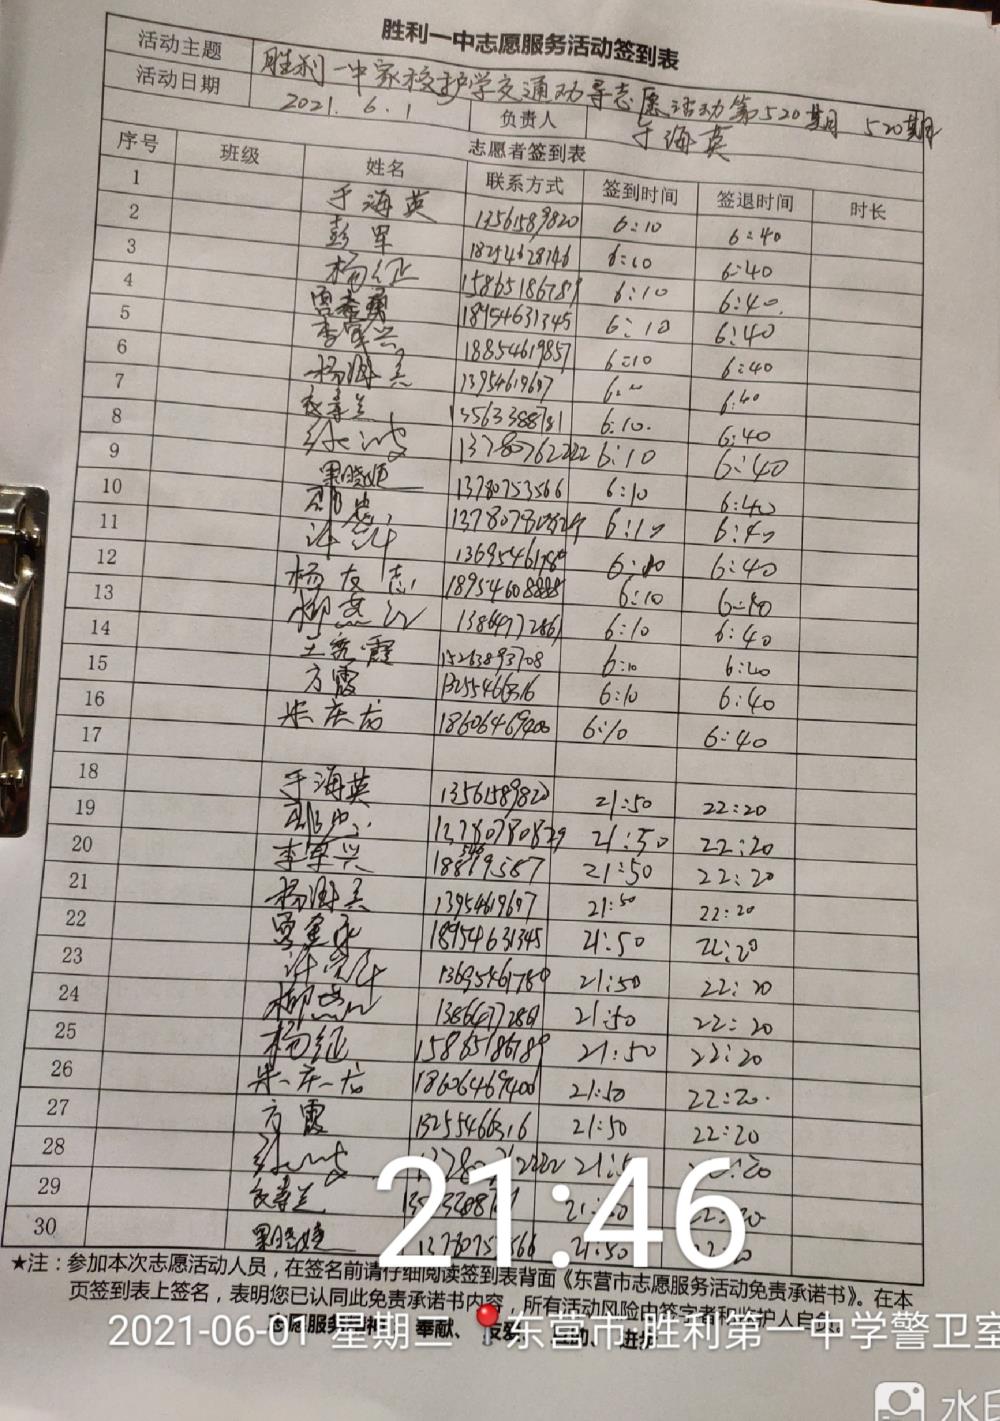 胜利一中志愿服务活动签到表
活动主题 胜利一中家校护学交通劝导志愿活动第520期 520期
活动日期 2021.6.1 负责人 于海英
志愿者签到表
序号 班级 姓名 联系方式 签到时间 签退时间 时长
1 于海英 13561589820 6:10 6:40
2 彭军 18254628746 6:10 6:40
3 杨征 15865186789 6:10 6:40
4 18954631345 6:10 6:40
5 李军兴 18854619857 6:10 6:40
6 杨 13954619697 6:40
7 13563388781 6:10. 6:40
8 13780762222 6:10 6:40
9 13780753566 6:10 6:40
10 13780780829 6:10 6:40
11 许 13695461789 6:10 6:40
12 杨友志 18954608888 6:10 6:40
13 柳燕 13864772861 6:10 6:40
14 王 霞 15263893708 6:10 6:40
15 方霞 13255466316 6:10 6:40
16 庆 18606469400 6:10 6:40
17
18 于海英 13561589820 21:50 22:20
19 13780780829 21:50 22:20
20 李军兴 21:50 22:20
21 杨 13954619697 21:50 22:20
22 18954631345 21:50 22:20
23 许 13695461789 21:50 22:20
24 柳燕 21:50 22:20
25 杨征 15865186789 21:50 22:20
26 庆 18606469400 21:50 22:20.
27 方霞 13255466316 21:50 22:20
28
29
30
21:46
★注：参加本次志愿活动人员，在签名前请仔细阅读签到表背面《东营市志愿服务活动免责承诺书》。在本
页签到表上签名，表明您已认同此免责承诺书内容，所有活动风险由签字者和监护人自负。
志愿服务精神：奉献、友爱、互助、进步
2021-06-01 星期二 东营市·胜利第一中学警卫室
水印